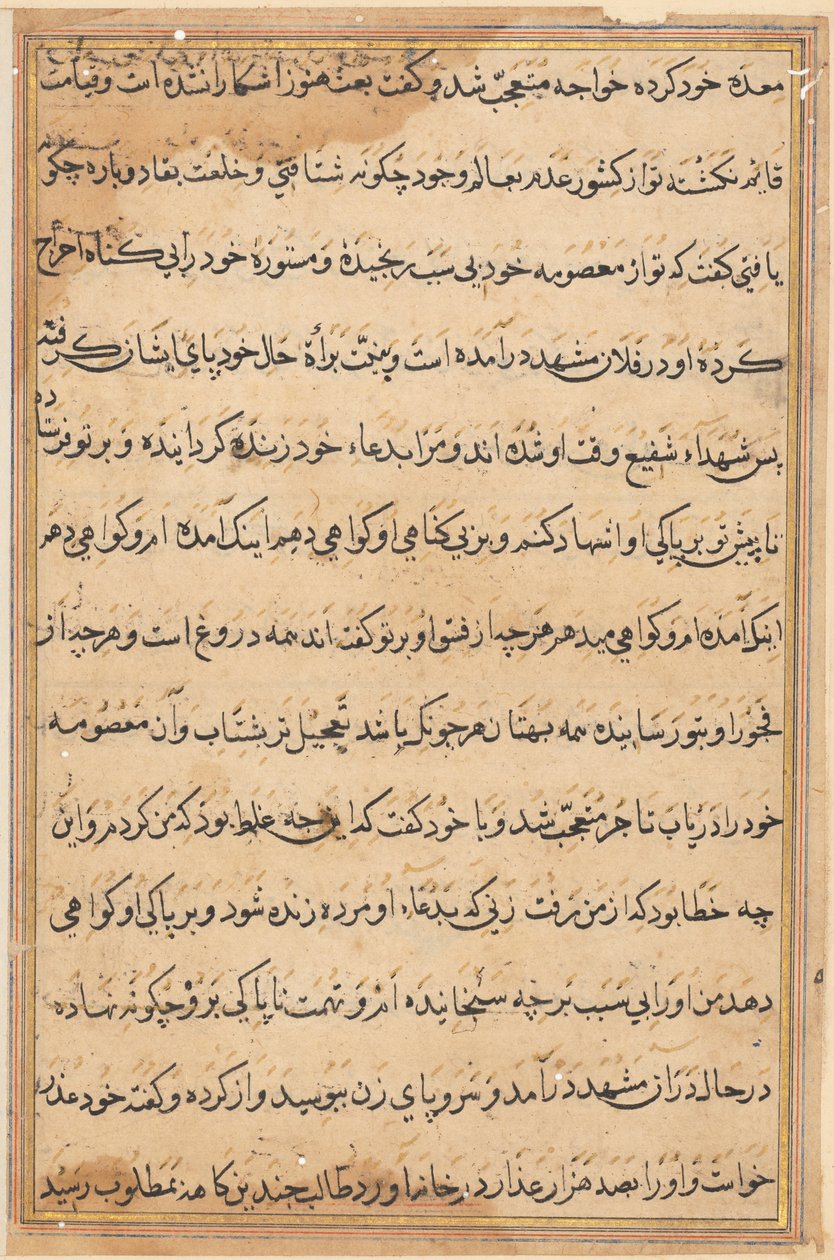 معدهٔ خود کرده خواجه متعجّب شد و گفت بعث هنوز آشکارا نشده است و قیامت
قایم نکشته تو از کشور عدم بعالم وجود چگونه شتافتی و خلعت بقا دوباره چگونه
یافتی گفت که تو از معصومه خود بی سبب رنجیدهٔ و مستورهٔ خود را بی کناه اخراج
کردهٔ او در فلان مشهد درآمده است و بنیّت براءة حال خود پای ایشان کرفته
پس شهداء شفیع وقت او شده اند و مرا بدعاء خود زنده کردانیده و بر تو فرستاده
تا پیش تو بر پاکی او اشهاد کنم و بر بی کناهی او کواهی دهم اینک آمده ام و کواهی دهم
اینک آمده ام و کواهی میدهم هرچه از فسق او بر تو کفته اند همه دروغ است و هرچه از
فجور او بتو رسانیده همه بهتان هرچونک باشد تعجیل تر بشتاب و آن معصومه
خود را دریاب تاجر متعجّب شد و با خود کفت که این چه غلط بود که من کردم و این
چه خطا بود که از من رفت زنی که بدعاء او مرده زنده شود و بر پاکی او کواهی
دهد من او را بی سبب بر چه رنجانیده ام و تهمت ناپاکی بر وْ چگونه نهاده
در حال در آن مشهد درآمد و سر و پای زن ببوسید و از کرده و کفته خود عذر
خواست و او را بصد هزار عذار در خانه اورد طالب چندین کاهه بمطلوب رسید